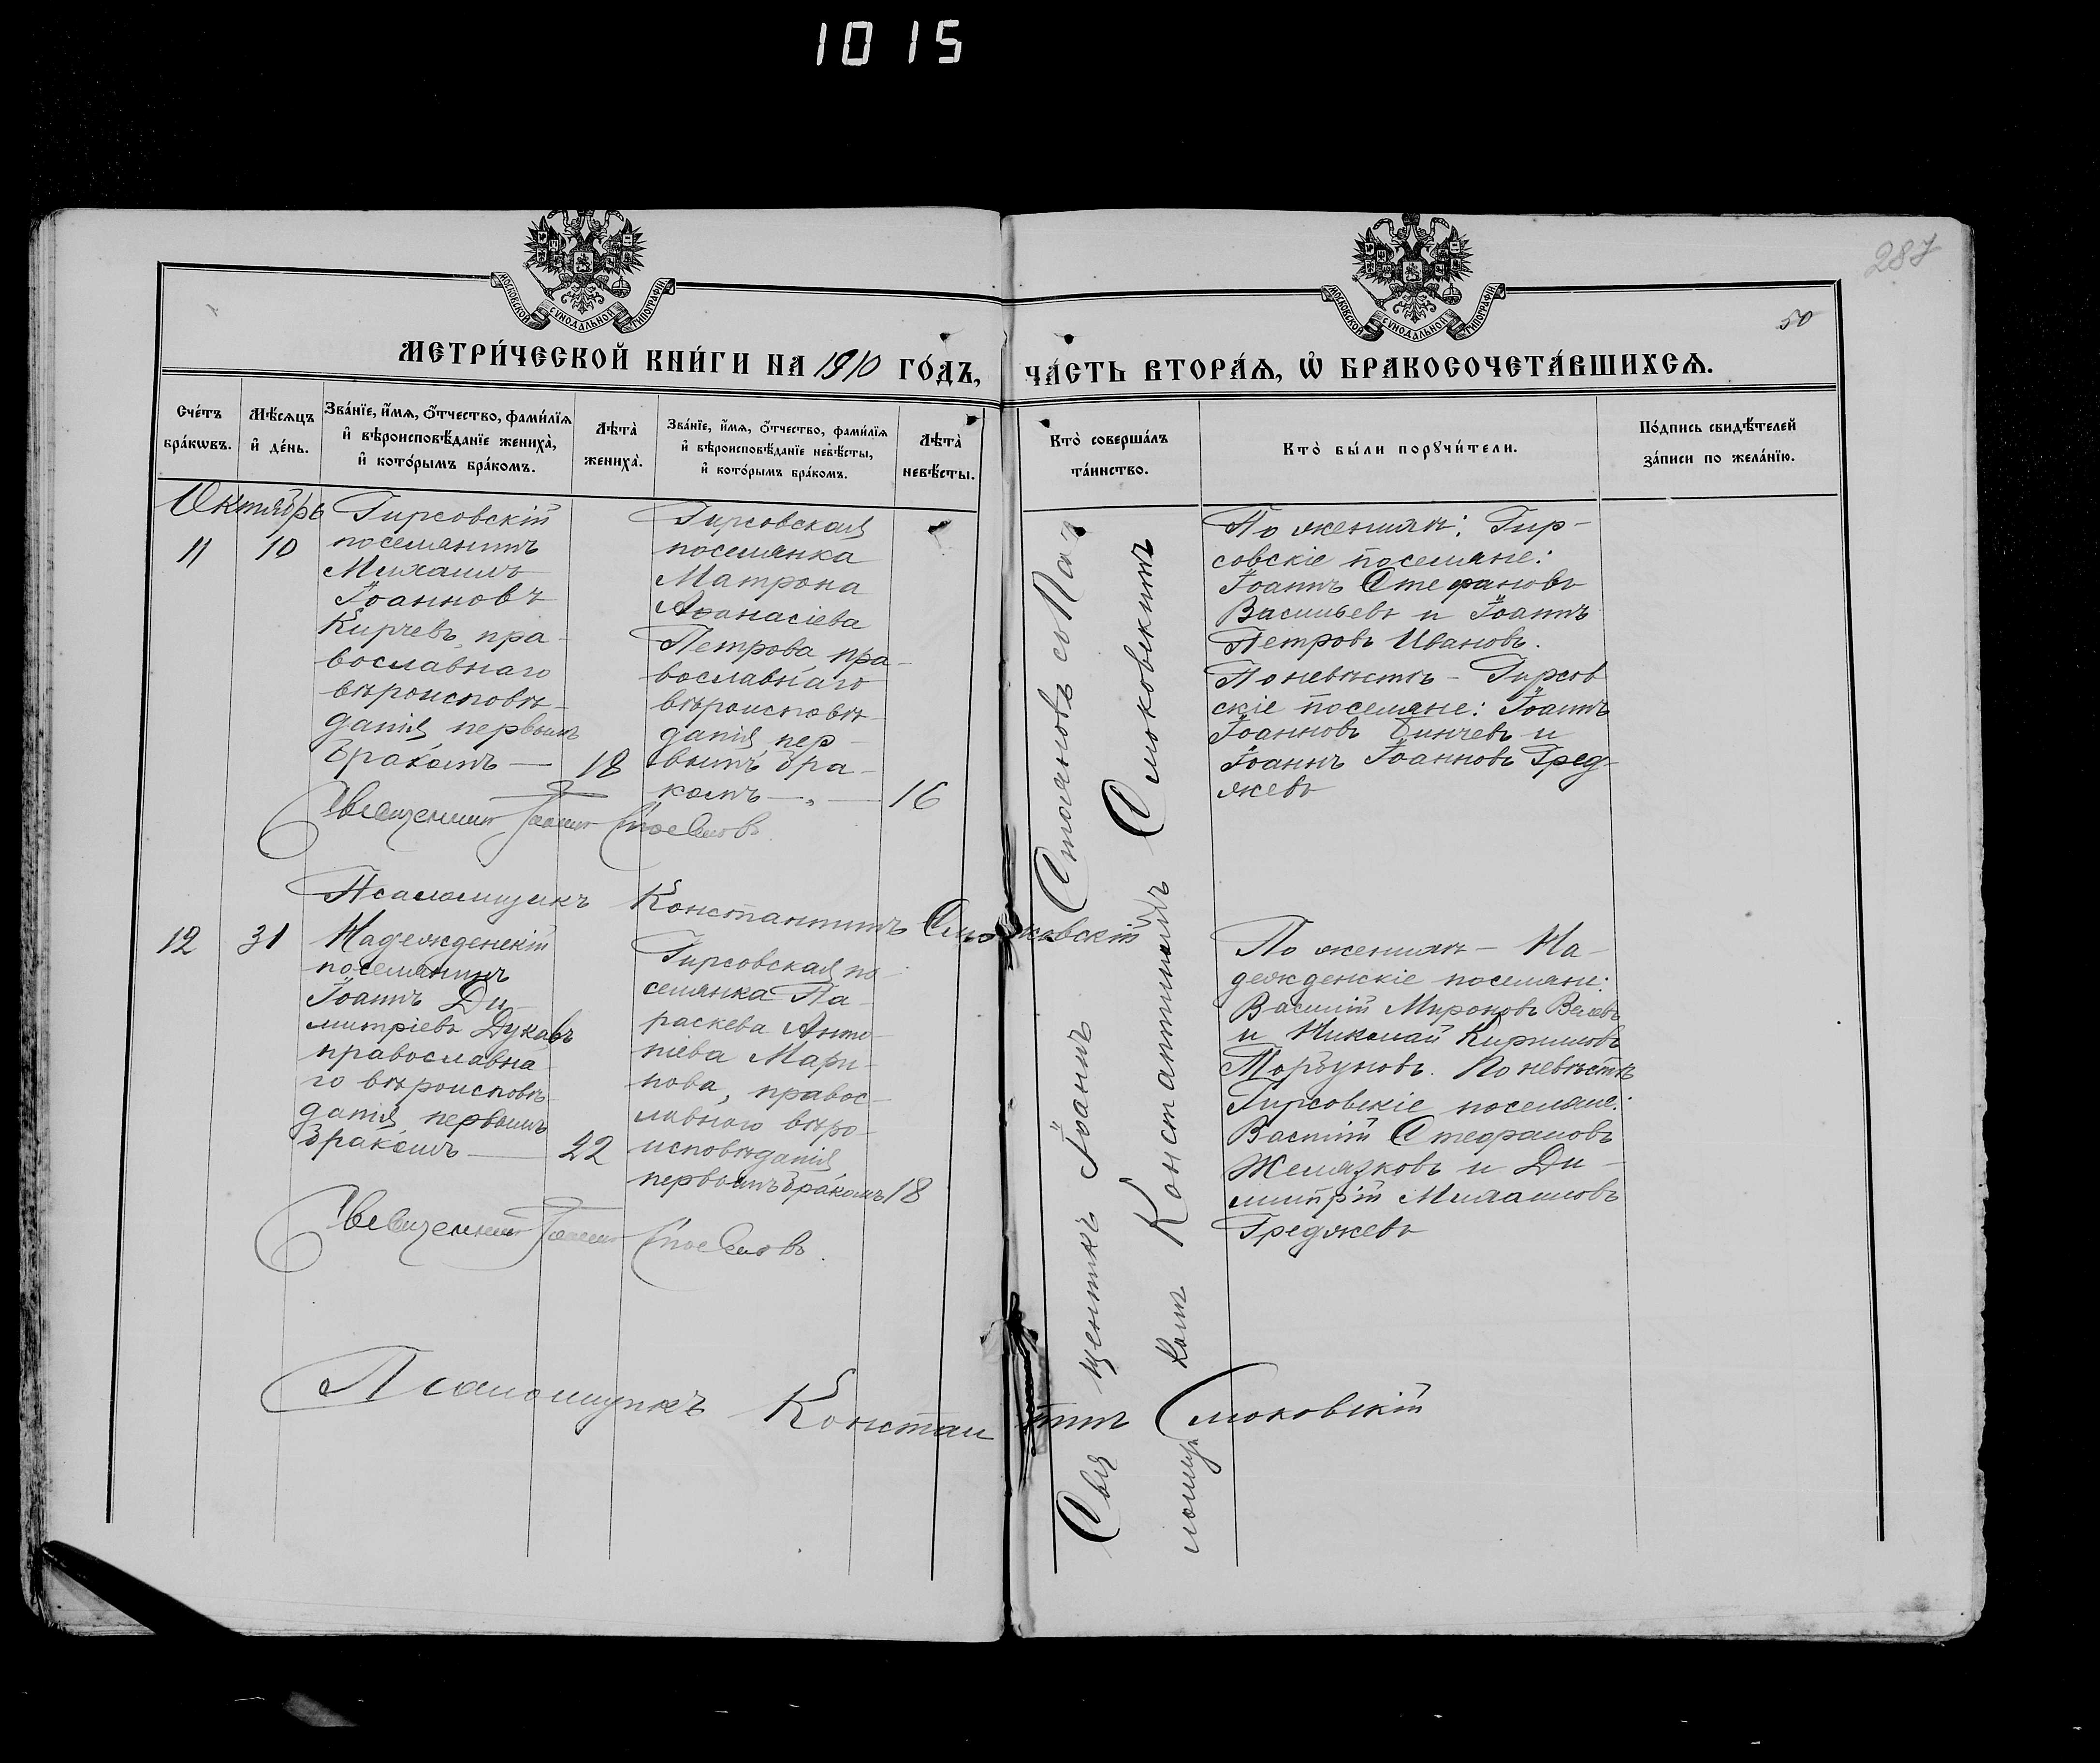 1015
287
50
МОСКОВСКОЙ СУНОДАЛЬНОЙ ТИПОГРАФІИ
МОСКОВСКОЙ СУНОДАЛЬНОЙ ТИПОГРАФІИ
МЕТРИ́ЧЕСКОЙ КНИ́ГИ НА 1910 ГО́ДЪ,
ЧА́СТЬ ВТОРА́Ѧ, Ѿ БРАКОСОЧЕТА́ВШИХСѦ.
Сче́тъ
бра́кѡвъ.
Мѣ́сѧцъ
и҆ де́нь.
Зва́нїе, и҆́мѧ, ѻ҆́тчество, фами́лїѧ
и҆ вѣроисповѣ́данїе жениха̀,
и҆ кото́рымъ бра́комъ.
Лѣта̀
жениха̀.
Зва́нїе, и҆́мѧ, ѻ҆́тчество, фами́лїѧ
и҆ вѣроисповѣ́данїе невѣ́сты,
и҆ кото́рымъ бра́комъ.
Лѣта̀
невѣ́сты.
Кто̀ соверша́лъ
та́инство.
Кто̀ бы́ли порꙋчи́тели.
По́дпись свидѣ́телей
за́писи по жела́нїю.
Октябрь
11
10
Гирсовскій
поселянинъ
Михаилъ
Іоанновъ
Кирчевъ, пра-
вославнаго
вѣроисповѣ-
данія, первымъ
бракомъ —
18
Гирсовская
поселянка
Матрона
Аѳанасіева
Петрова, пра-
вославнаго
вѣроисповѣ-
данія, пер-
вымъ бра-
комъ —
16
По женихѣ: Гир-
совскіе поселяне:
Іоаннъ Стефановъ
Васильевъ и Іоаннъ
Петровъ Ивановъ.
По невѣстѣ – Гирсов
скіе поселяне: Іоаннъ
Іоанновъ Бинчевъ и
Іоаннъ Іоанновъ Гред-
жевъ
Священникъ Іоаннъ Стояновъ.
Псаломщикъ Константинъ Смоковскій
12
31
Надежденскій
поселянинъ
Іоаннъ Ди-
митріевъ Дукавъ
православна
го вѣроисповѣ-
данія, первымъ
бракомъ —
22
Гирсовская по-
селянка Па-
раскева Анто-
ніева Мари-
нова, правос-
лавнаго вѣро-
исповѣданія,
первымъ бракомъ
18
По женихѣ – На-
дежденскіе поселяне:
Василій Мироновъ
и Николай Кирилловъ
Торбуновъ. По невѣстѣ
Гирсовскіе поселяне:
Василій Стефановъ
Желязковъ и Ди-
митрій Михаиловъ
Греджевъ
Священникъ Іоаннъ Стояновъ.
Псаломщикъ Константинъ Смоковскій
Священникъ Іоаннъ Стояновъ со Пса
ломщикомъ Константиномъ Смоковскимъ